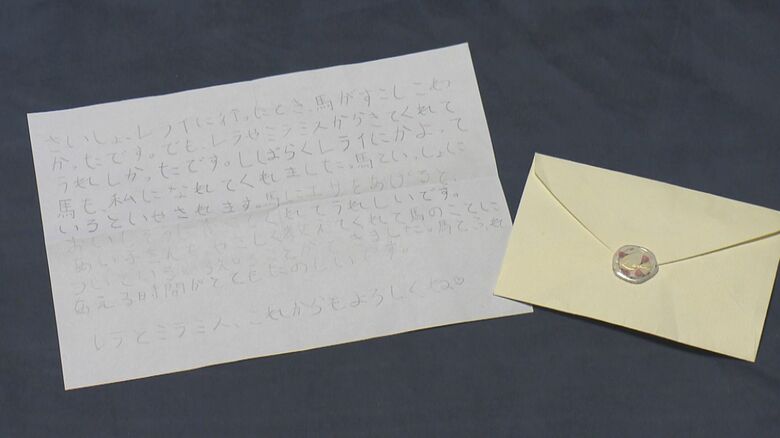 さいしょ、レライに行ったとき、馬がすこしこわ
かったです。でも、レラやミラミスがきてくれて
うれしかったです。しばらくレライにかよって
馬も、私になれてくれました。馬といっしょに
いるといやされます。馬に
くれてうれしいです。
やさしく教えてくれて馬のことに
ついている 馬とふれ
あえる時間がとてもたのしいです。
レラとミラミス、これからもよろしくね♡